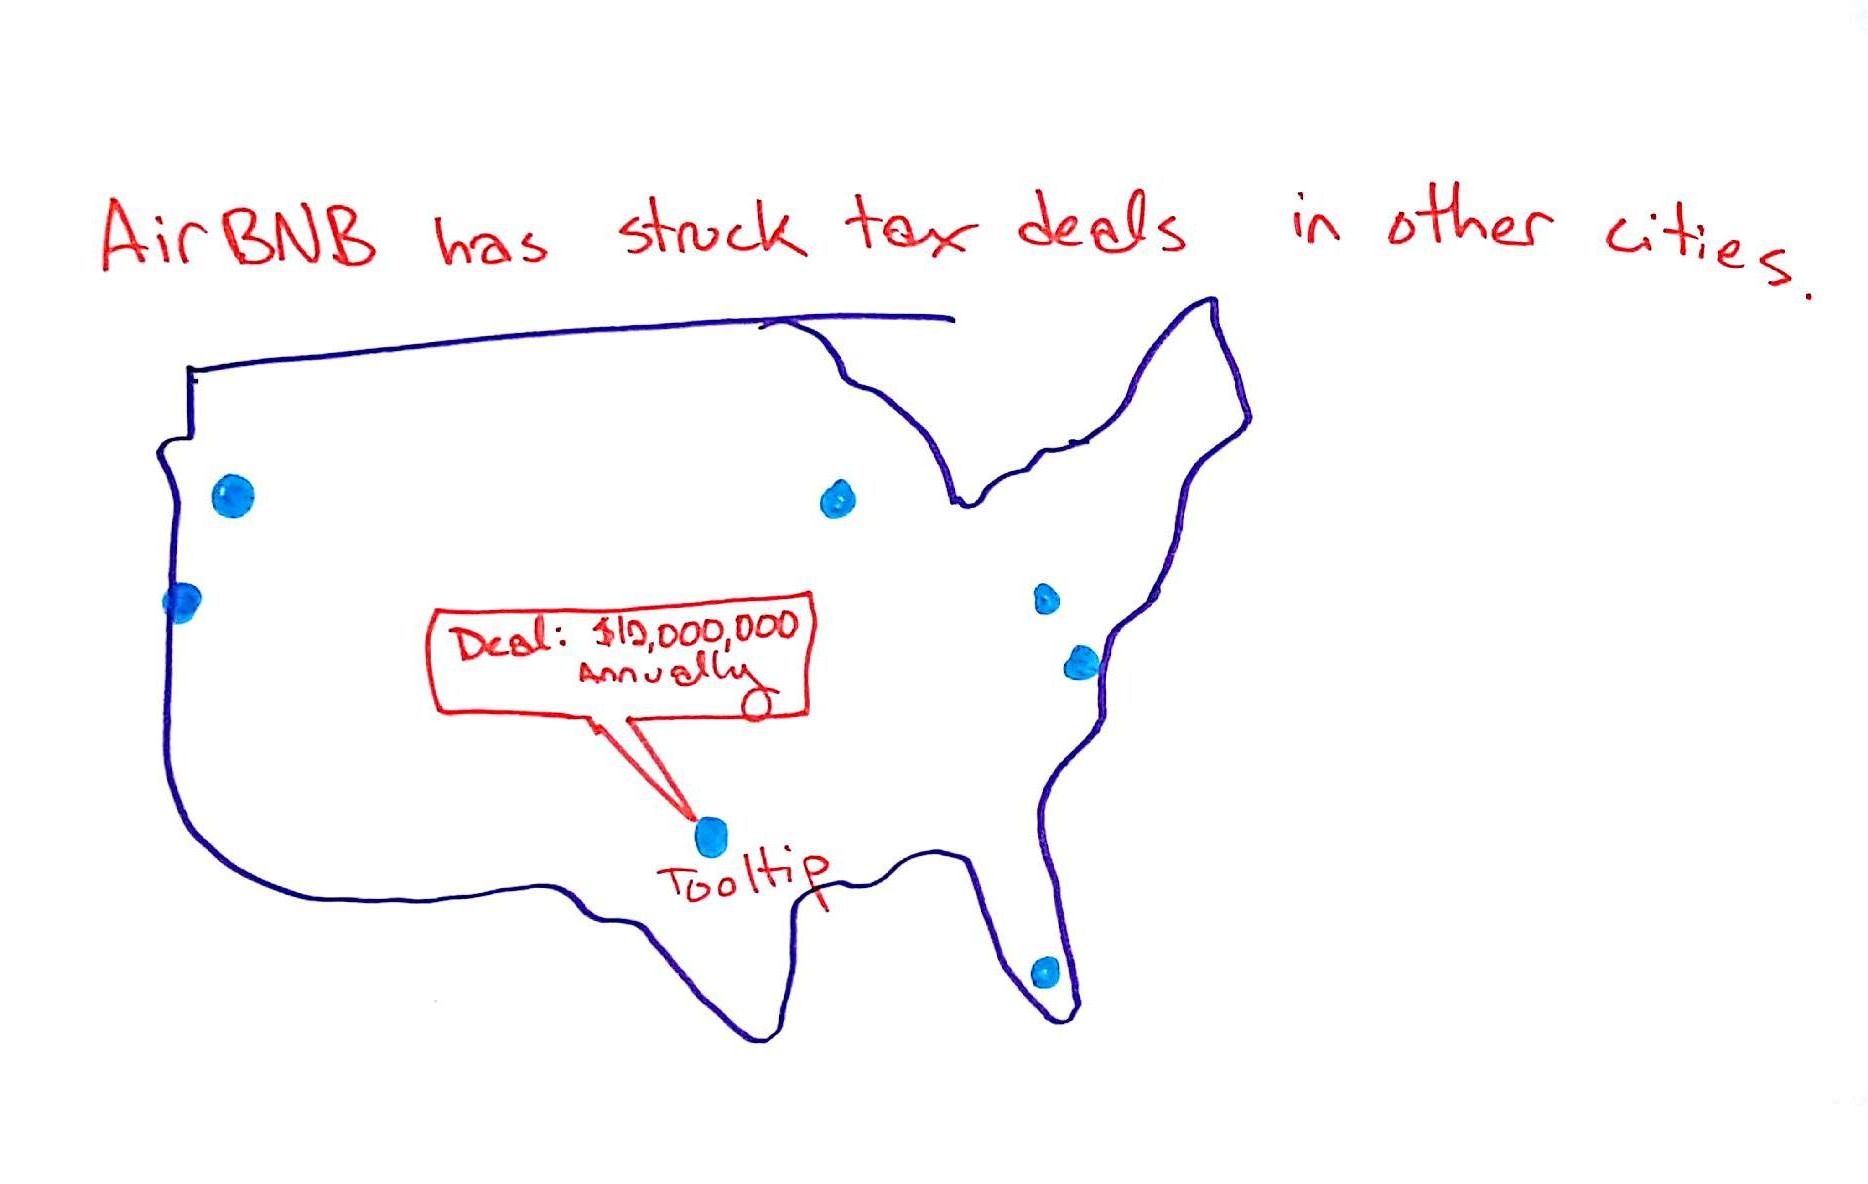 AirBNB has struck tax deals in other cities.
Deal: $10,000,000
Annually
Tooltip